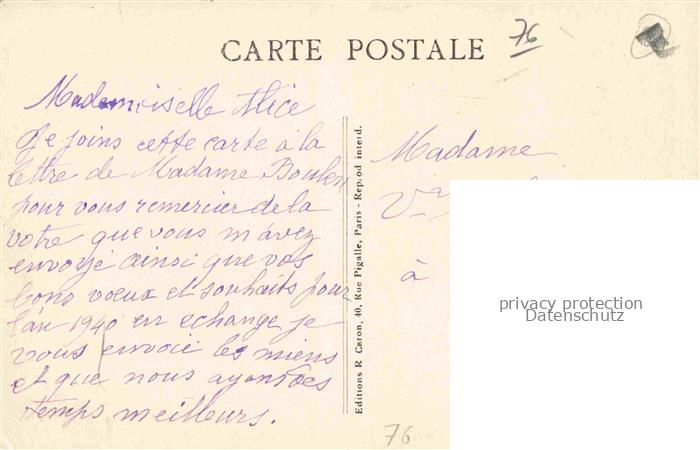 76
CARTE POSTALE
Mademoiselle Alice
Je joins cette carte à la
lettre de Madame
pour vous remercier de la
votre que vous m'avez
envoyé ainsi que vos
bons vœux et souhaits pour
l'an 1940 en echange je
vous envoie les miens
et que nous ayons des
temps meilleurs.
Editions R Caron, 40, Rue Pigalle, Paris - Reprod interd.
Madame
à
privacy protection
Datenschutz
76